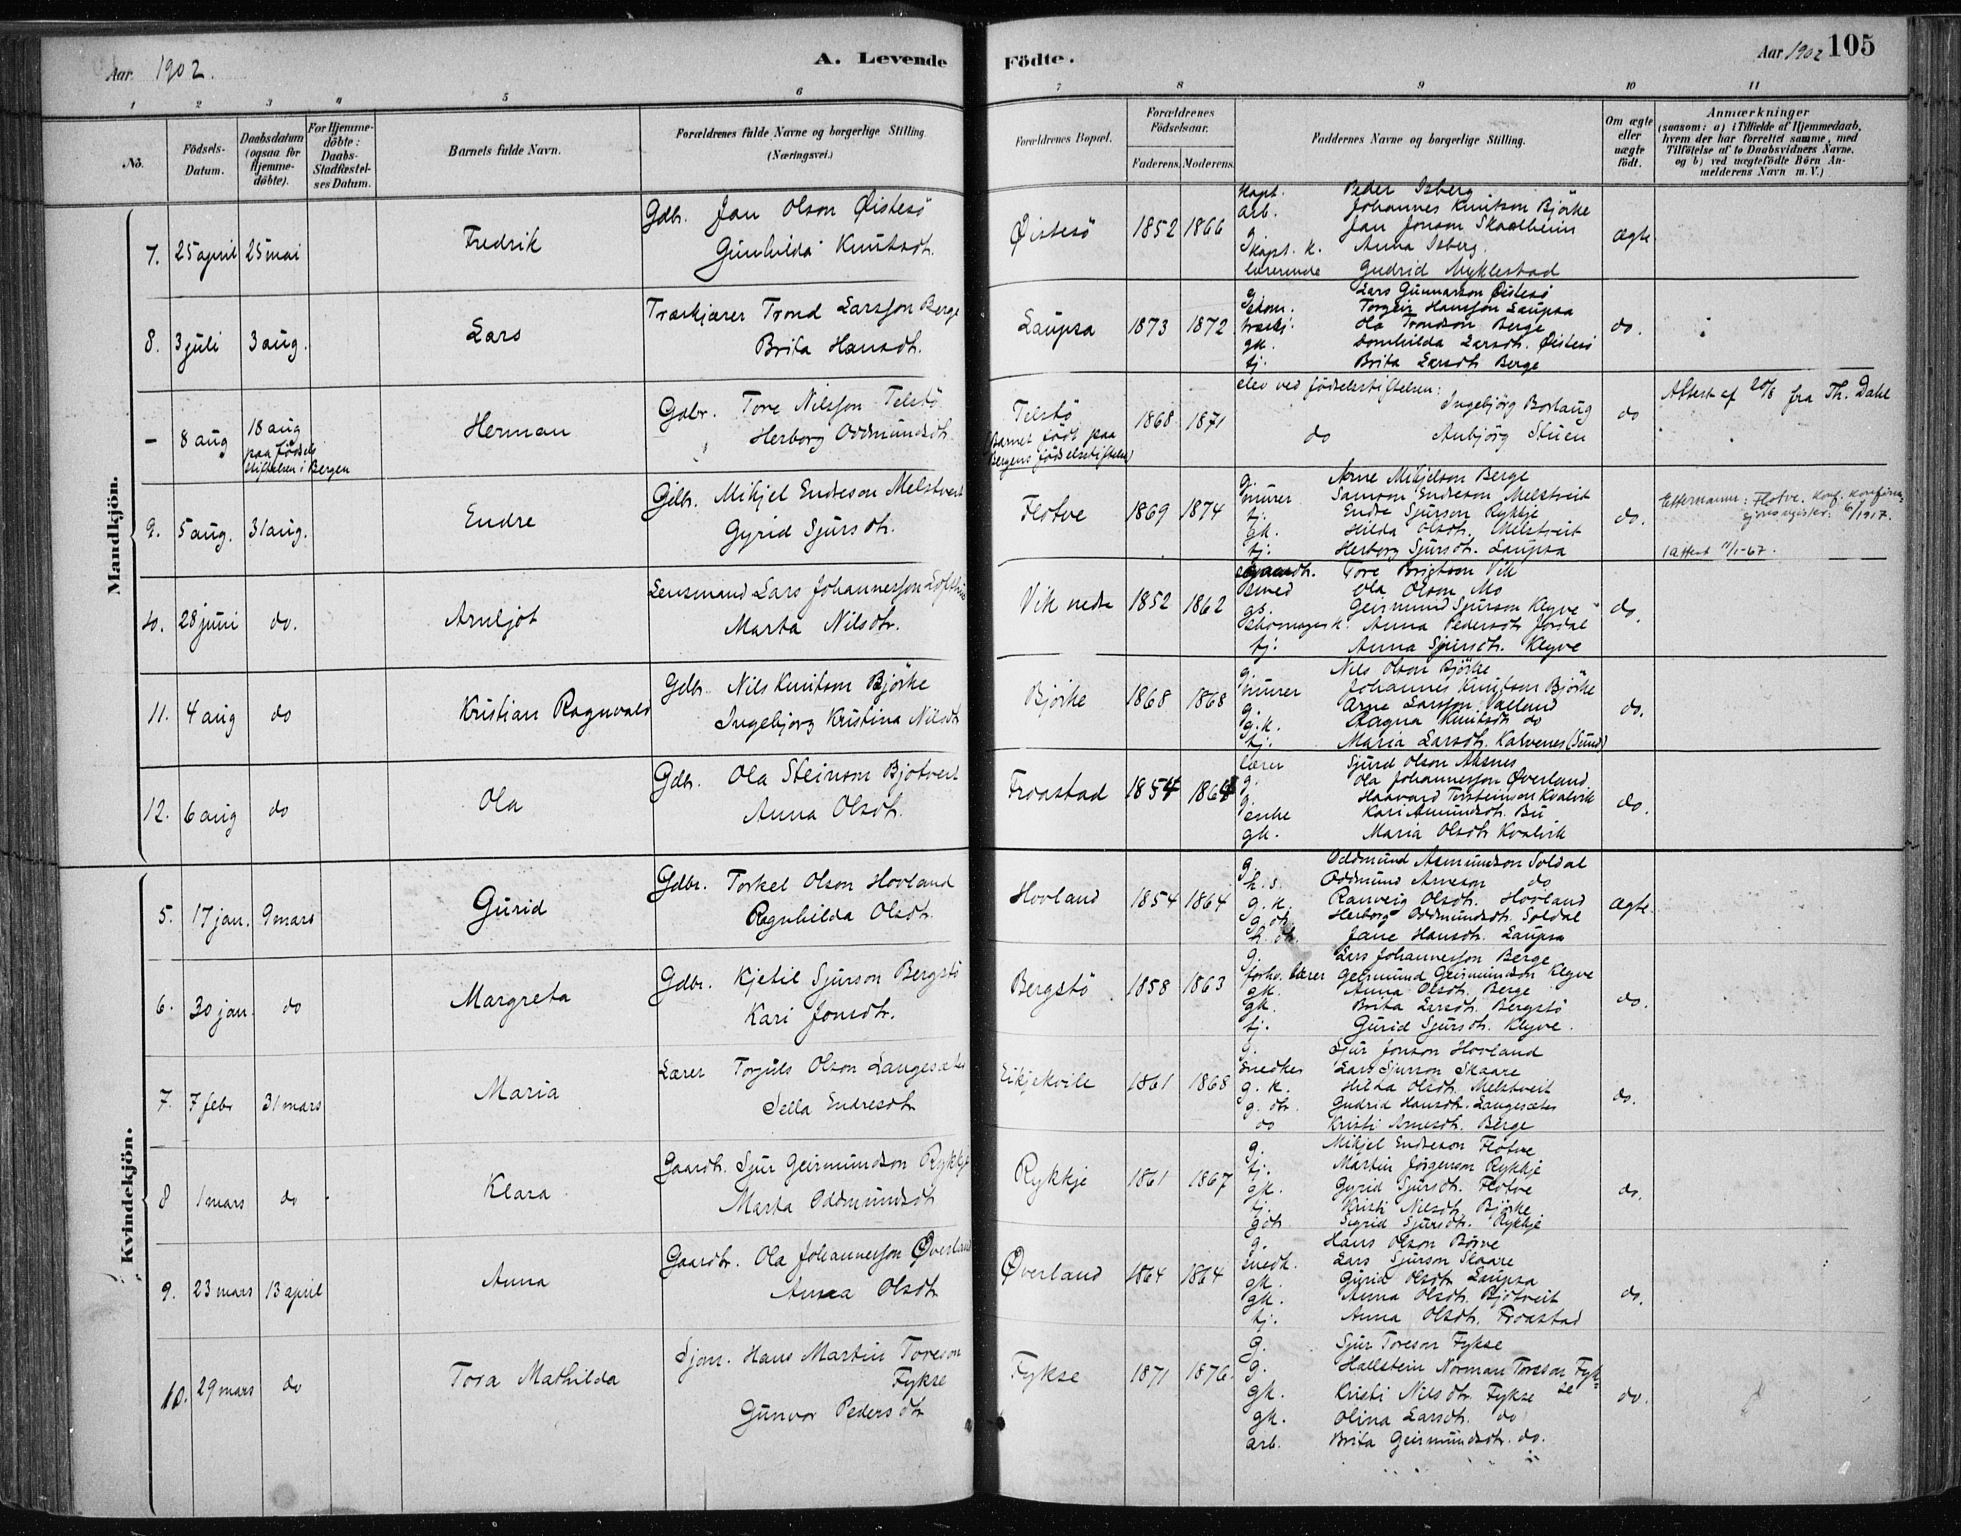 Aar. 1902.
A. Levende
Födte.
Aar 1902 105
1 2 3 4 5 6 7 8 9 10 11
No.
Födsels-Datum.
Daabsdatum (ogsaa for Hjemme-döbte).
For Hjemme-döbte: Daabs-Stadfæstel-ses Datum.
Barnets fulde Navn.
Forældrenes fulde Navne og borgerlige Stilling (Næringsvei.)
Forældrenes Bopæl.
Forældrenes Födselsaar.
Faderens. Moderens.
Faddernes Navne og borgerlige Stilling.
Om ægte eller uægte födt.
Anmærkninger
(saasom: a) i Tilfælde af Hjemmedaab, hvem der har forrettet samme, med Tilföielse af to Daabsvidners Navne, og b) ved uægtefödte Börn An-melderens Navn m. V.)
Mandkjön.
7. 25 april 25 mai Fredrik
Gdbr. Jan Olson Øistesö
Gunhilda Knutsdt.
Øistesö 1852 1866
Kapt. Peder Isberg
arb. Johannes Knutson Björke
g. Jan Jonson Skaalheim
Kapt. k. Anna Isberg
lærerinde Gudrid Myklestad
ægte
8. 3 juli 3 aug. Lars
Træskjærer Trond Larsson Berge
Brita Hansdt.
Laupsa 1873 1872
g. Lars Gunnarson Øistesö
Torgeir Hansson Laupsa
træskj. Ola Trondson Berge
gk. Larsdt. Øistesö
tj. Brita Larsdt. Berge
do.
– 8 aug 18 aug paa födsels stiftelsen i Bergen Herman
Gdbr. Tore Nilsson Telstö
Herborg Oddmundsdt.
Telstö (Barnet födt paa Bergens födselsstiftelse) 1868 1871
elev ved födselsstiftelsen:
Ingebjörg Borlaug
do Anbjörg Stuen
do
Attest af 20/8 fra Th. Dahl
9. 5 aug. 31 aug. Endre
Gdbr. Mikjel Endreson Melstveit
Gyrid Sjursdt.
Flotve 1869 1874
g. Arne Mikjelson Berge
murer Samson Endreson Melstveit
tj. Endre Sjurson Rykkje
gk. Hilda Olsdt. Melstveit
tj. Herborg Sjursdt. Laupsa
do.
Efternavn: Flotve.
1 attest 11/1-67.
10. 28 juni do. Arnljot
Lensmand Lars Johannesson
Marta Nilsdtr.
Vik nedre 1852 1862
Tore Brigtson Vik
smed Ola Olson Mo
gs. Geirmund Sjurson Klyve
skomager k. Anna Pedersdt Jordal
tj. Anna Sjursdt. Klyve
do.
11. 4 aug do Kristian Ragnvald
Gdbr. Nils Knutson Björke
Ingebjorg Kristina Nilsdt
Björke 1868 1868
g. Nils Olson Björke
murer Johannes Knutson Björke
g. Arne Larsson Valland
g.k. Ragna Knutsdt do
tj. Maria Larsdt. Kalvenes (Sund)
do.
12. 6 aug do Ola
Gdbr. Ola Steinson Bjotveit
Anna Olsdt.
Froastad 1854 1864
lærer Sjurd Olson Aksnes
g. Ola Johannesson Øverland
g. Haavard Torsteinson Kvalvik
enke Kari Amundsdt. Bu
gk. Maria Olsdt. Kvalvik
do.
Kvindekjön.
5. 17 jan. 9 mars Gurid
Gdbr. Torkel Olson Hovland
Ragnhilda Olsdt.
Hovland 1854 1864
g. Oddmund Asmundson Soldal
h.s. Oddmund Arneson do
g.k. Ranveig Olsdt. Hovland
g.dt. Herborg Oddmundsdt. Soldal
h.dt. Jane Hansdt. Laupsa
ægte
6. 30 jan. do Margreta
Gdbr. Kjetil Sjurson Bergstö
Kari Jonsdtr.
Bergstö 1858 1863
g. Lars Johannesson Berge
forhv. lærer Geirmund Geirmundson Klyve
gk. Anna Olsdt. Berge
gk. Brita Larsdt. Bergstö
tj. Gurid Sjursdt. Klyve.
do.
7. 7 febr 31 mars Maria
Lærer Torjuls Olson Langesæter
Sella Endresdt
Eikjekvile 1861 1868
g. Sjur Jonson Hovland
snedker Lars Sjurson Skaare
g.k. Hilda Olsdt. Melstveit
g.dtr. Gudrid Hansdt. Langesæter
do Kristi Arnesdt. Berge
do.
8 1 mars do Klara
Gaardb. Sjur Geirmundson Rykkje
Marta Oddmundsdt
Rykkje 1861 1867
g. Mikjel Endreson Flotve
tj. Martin Jörgenson Rykkje
gk. Gyrid Sjursdt. Flotve
tj. Kristi Nilsdt. Björke
gdt. Sigrid Sjursdt. Rykkje
do.
9. 23 mars 13 april Anna
Gaardbr. Ola Johannesson Øverland
Anna Olsdt
Øverland 1864 1864
g. Hans Olson Börve
snedk. Lars Sjurson Skaare
gk. Gurid Olsdt Laupsa
gk. Anna Olsdt. Bjotveit
tj. Anna Olsdt. Froastad
do.
10. 29 mars do Tora Mathilda
Sjøm. Hans Martin Toreson Fykse
Gunvor Pedersdt
Fykse 1871 1876.
g. Sjur Toreson Fykse
g. Hallstein Norman Toreson Fykse
gk. Kristi Nilsdtr. Fykse
gk. Olina Larsdt. do
arb. Brita Geirmundsdt. do.
do.